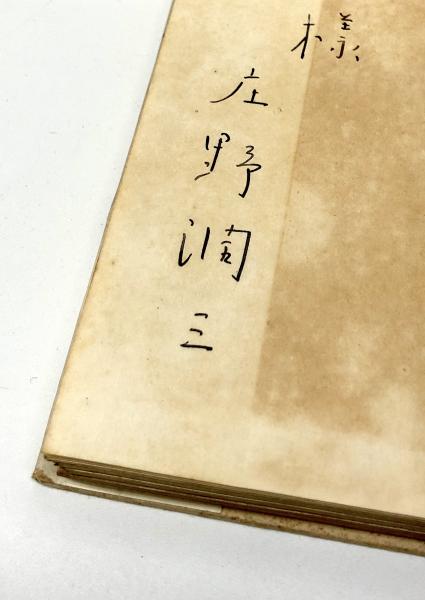 様
庄野潤三